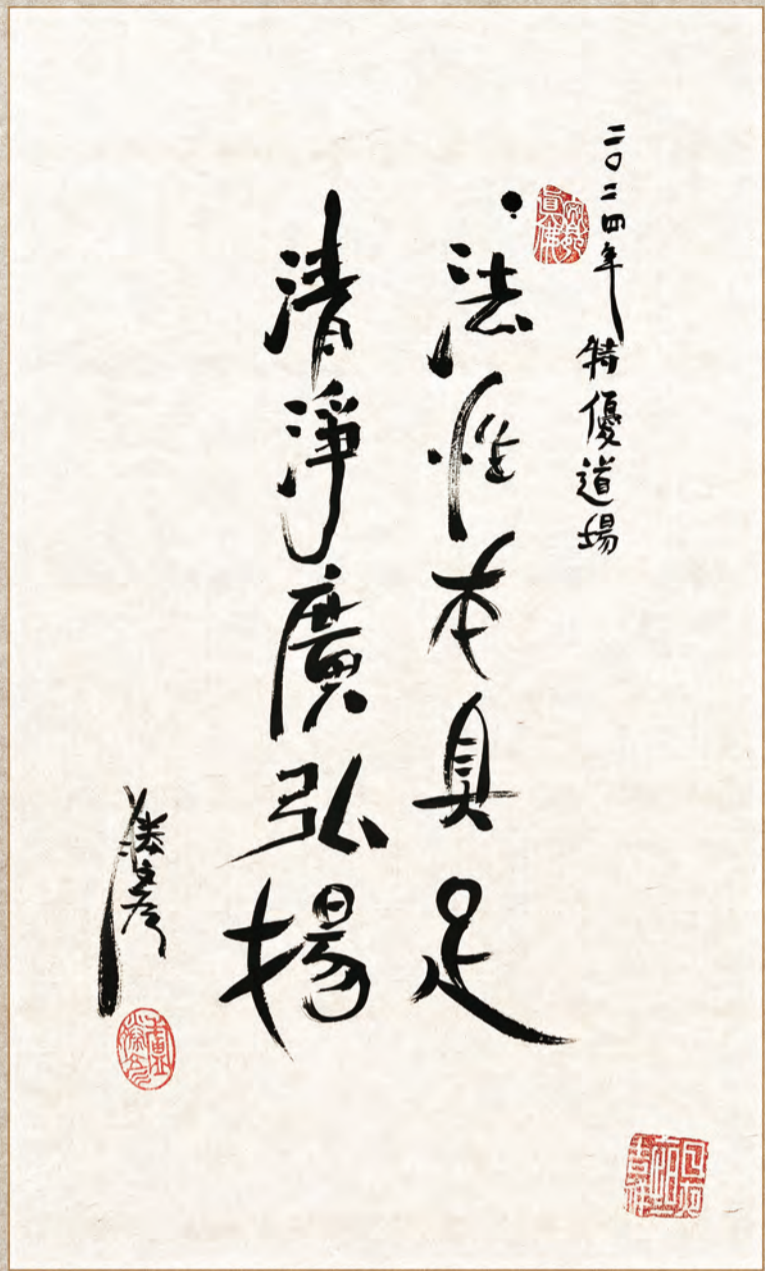 二〇二四年 特優道場
法性本具足
清淨廣弘揚